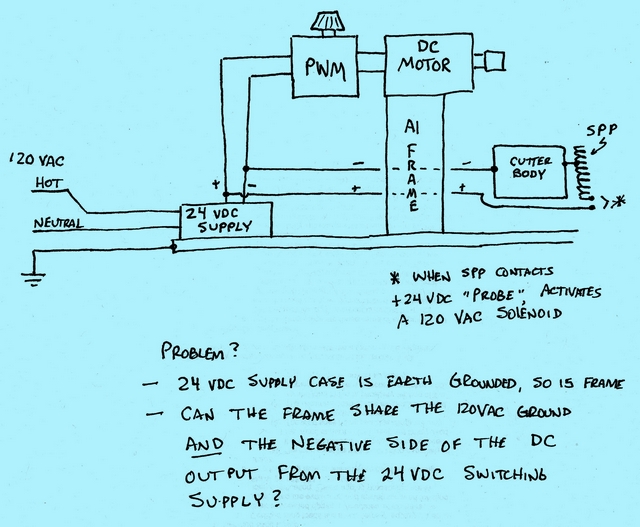 PWM
DC
MOTOR
Al
FRAME
SPP
CUTTER
BODY
120 VAC
HOT
NEUTRAL
+
-
- -
+ +
24 VDC
SUPPLY
*
* WHEN SPP CONTACTS
+24 VDC "PROBE", ACTIVATES
A 120 VAC SOLENOID
PROBLEM?
- 24 VDC SUPPLY CASE IS EARTH GROUNDED, SO IS FRAME
- CAN THE FRAME SHARE THE 120VAC GROUND
AND THE NEGATIVE SIDE OF THE DC
OUTPUT FROM THE 24 VDC SWITCHING
SUPPLY?